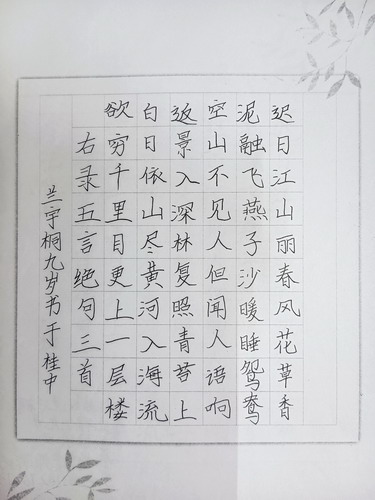 迟日江山丽春风花草香
泥融飞燕子沙暖睡鸳鸯
空山不见人但闻人语响
返景入深林复照青苔上
白日依山尽黄河入海流
欲穷千里目更上一层楼
右录五言绝句三首
兰宇桐九岁书于桂中